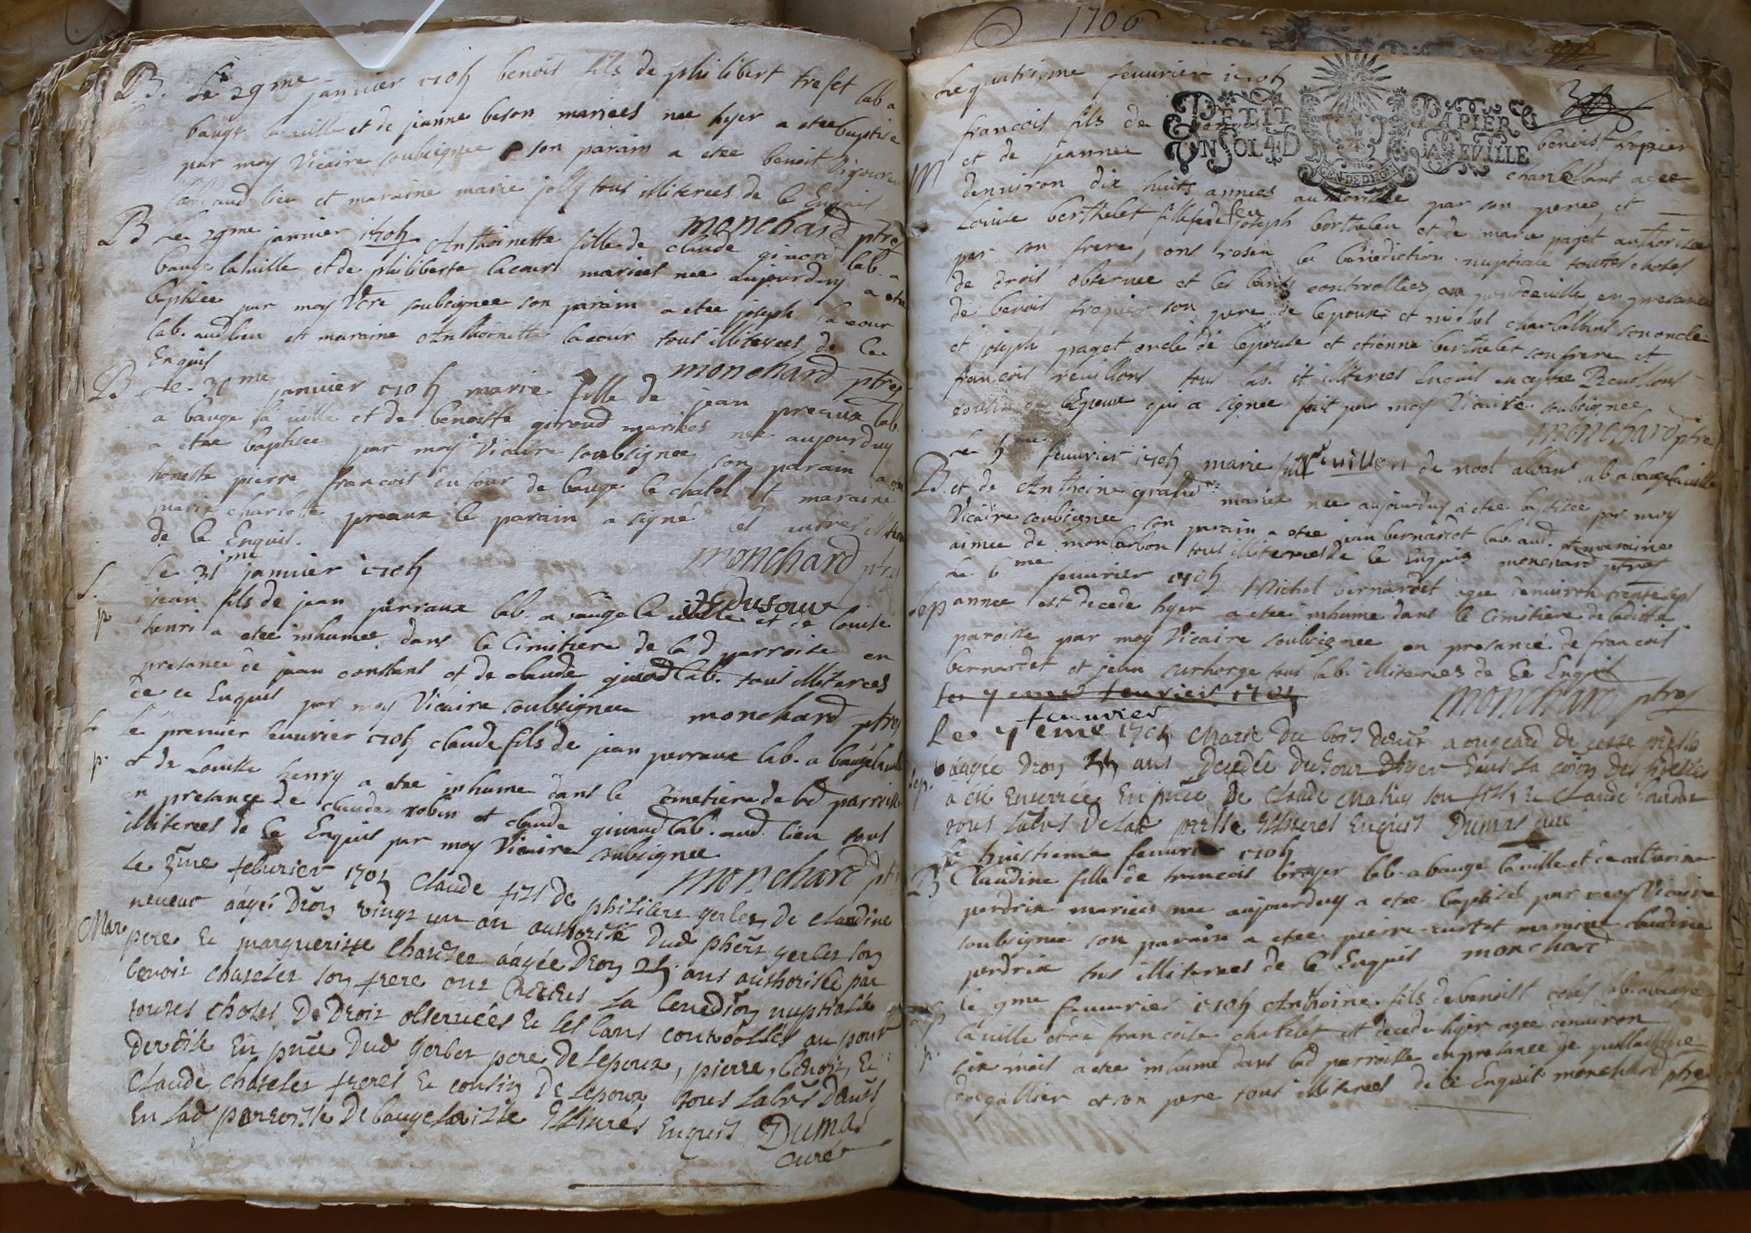 B. Le 29me janvier 1705 benoit fils de philibert trefet lab a
baugé la ville et de jeanne beson mariees nee hyer a etee baptisé
par moy Vicaire soubsignee son parain a etee benoit
aud lieu et maraine marie jolly tous illiterees de ce Enquis
monchard ptre
B Le 29me janvier 1705 Anthoinette fille de claude ginon lab. a
bauge la ville et de philiberte lacour mariees nee aujourduy a ete
baptisee par moy Vcre soubsignee son parain a etee joseph lacour
lab. aud lieu et maraine Anthoinette lacour tous illiterees de ce
Enquis
monchard ptre
B. Le 30me janvier 1705 marie fille de jean preaux lab.
a bauge la ville et de benoite giroud mariees nee aujourduy
a etee baptisee par moy Vicaire soubsignee son parain a ete
honeste pierre francois dufour de bauge le chatel et maraine
marie charlotte preaux le parain a signé et autres illiteres
de ce Enquis.
monchard ptre
Le 31me janvier 1705
S. jean fils de jean perraux lab. a bauge la ville et de louise
p henri a etee inhumee dans le Cimitiere de lad parroise en
presance de jean constant et de claude giraud lab. tous illiterees
de ce Enquis par moy Vicaire soubsignee monchard ptre
S. le premier feuurier 1705 claude fils de jean perraux lab. a baugé la ville
p. et de Louise henry a etee inhume dans le cemetiere de lad parroise
en presance de claude robin et claude giraud lab. aud. lieu tous
illiterees de ce Enquis par moy Vicaire subsignee
monchard ptre
Le 3me feburier 1705 Claude fils de philibert gerbet de claudine
neveur aagé Dron vingt un an authorisé Dud phbert gerbet son
Mar pere Et marguerite Chatelet aagee Dron 25 ans authorisée par
benoit chatelet son frere ont receus La benediôn nuptialle
toutes choses De Droit observées Et les bans controollés au pont
Deveile En pñce Dud gerbet pere de lepoux, pierre, benoit, Et
Claude chatelet freres Et cousin De lepoux tous labrs Dauts
En lad parroisse De bauge la ville Illiterés Enquis Dumas
curé
1706
Le quatrieme feuurier 1705
PETIT PAPIER
UN SOL 4 D LA FEVILLE
GEN. DE DIJON
francois fils de benoist
M et de jeanne chanellant agee
denuiron dix huits annees authorisee par son pere, et
Louise berthelet fille de feu joseph berthelet et de marie paget authorisee
par son frere, ons receu la benediction nuptiale touttes choses
de droit obseruee et les bans controollees au pontdeveille en presance
de benoit son pere de lepoux et michel chanellant son oncle
et joseph paget oncle de lepouse et etienne berthelet son frere et
francois reuillons tous lab. et illiterees Enquis excepte Reuillons
cousin de lepoux qui a signee fait par moy Vicaire soubsignee
monchard ptre
Le 5me feuurier 1705 marie fille de noel alban lab a bauge la ville
B. et de Antheine grand mariee nee aujourduy a etee baptisee par moy
Vicaire soubsignee son parain a etee jean bernardet lab. aud. et maraine
aimee de montarbon tous illiterees de ce Enquis monchard ptre
Le 6me feuurier 1705 Michel bernardet agee denuiron trente sept
sep annee est decede hyer a etee inhume dans le Cimitiere de laditte
paroisse par moy Vicaire soubsignee en presance de francois
bernardet et jean curhorge tous lab. illiterees de ce Enquis
monchard ptre
Le 7eme feuurier 1705
feuurier
Le 7eme 1705 Marie Du bois Deuis a ougeard de cette presse
sep. aagée Dron 35 ans Decedée Du jour Dhyer Dans la coion Des fidelles
a été Enterrée En pñce De Claude Mathey son fils, Et Claude baudet
tous Labrs De lad presse Illiterés Enquis Dumas curé
Le huistieme feuurier 1705
B Claudine fille de francois broyer lab. a bauge la ville et de catherine
perdrix mariees nee aujourduy a etee baptisee par moy Vicaire
soubsignee son parain a etee pierre curtet maraine claudine
perdrix tous illiterees de ce Enquis monchard
sep le 9me feuurier 1705 Anthoine fils de benoist lab. a bauge
p. la ville et de francoise chatelet est decede hyer agee denuiron
six mois a etee inhume dans lad parroise en presance de guillaume
engallier et son pere tous illiterees de ce Enquis monchard ptre